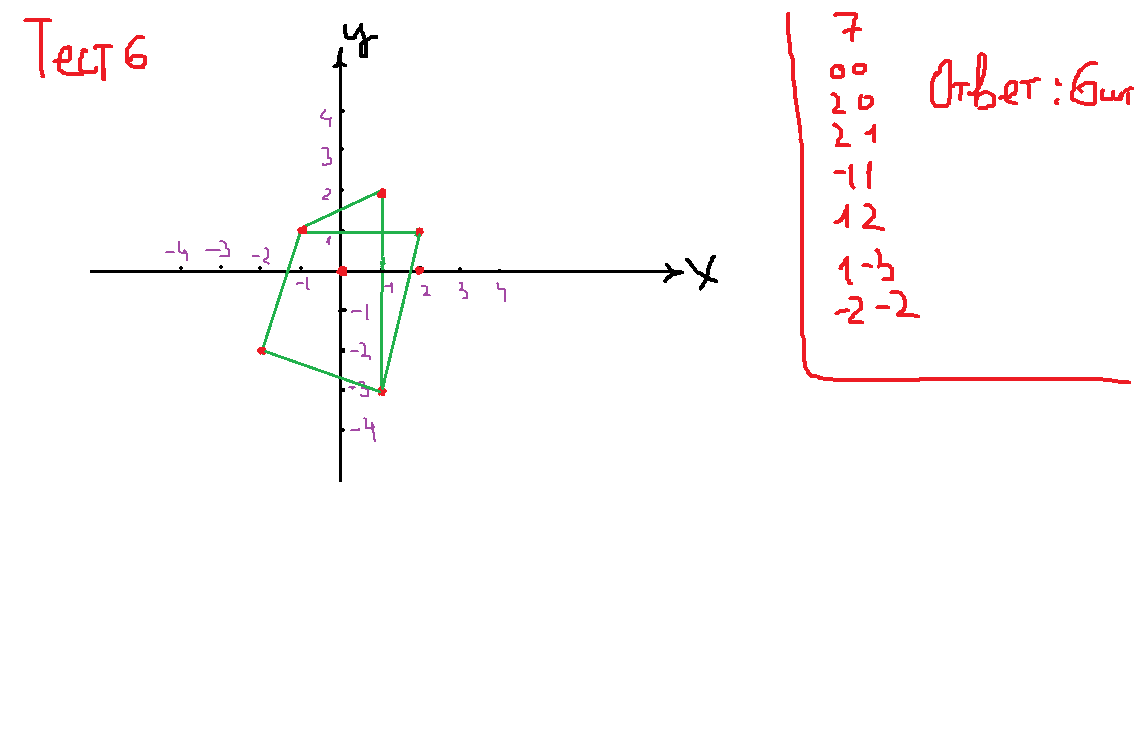 Тест 6
y
4
3
2
1
-4 -3 -2
-1 1 2 3 4
x
-1
-2
-3
-4
7
0 0
2 0
2 1
-1 1
1 2
1 -3
-2 -2
Ответ: 6шт